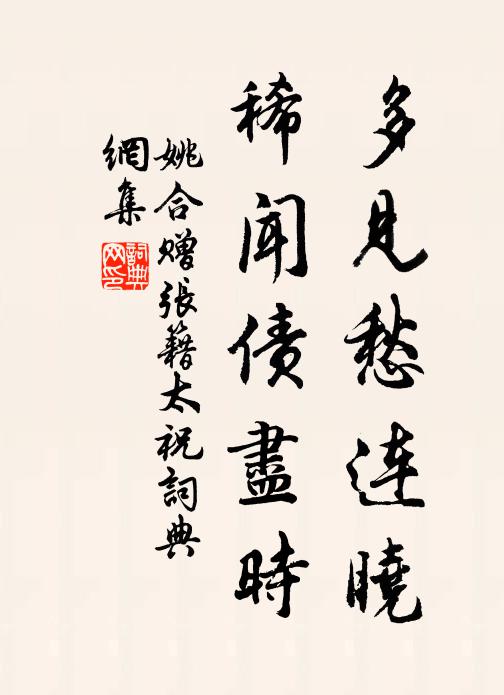 多見愁連曉
稀聞債盡時
姚合贈張籍太祝詞典
網集
詞典
网印